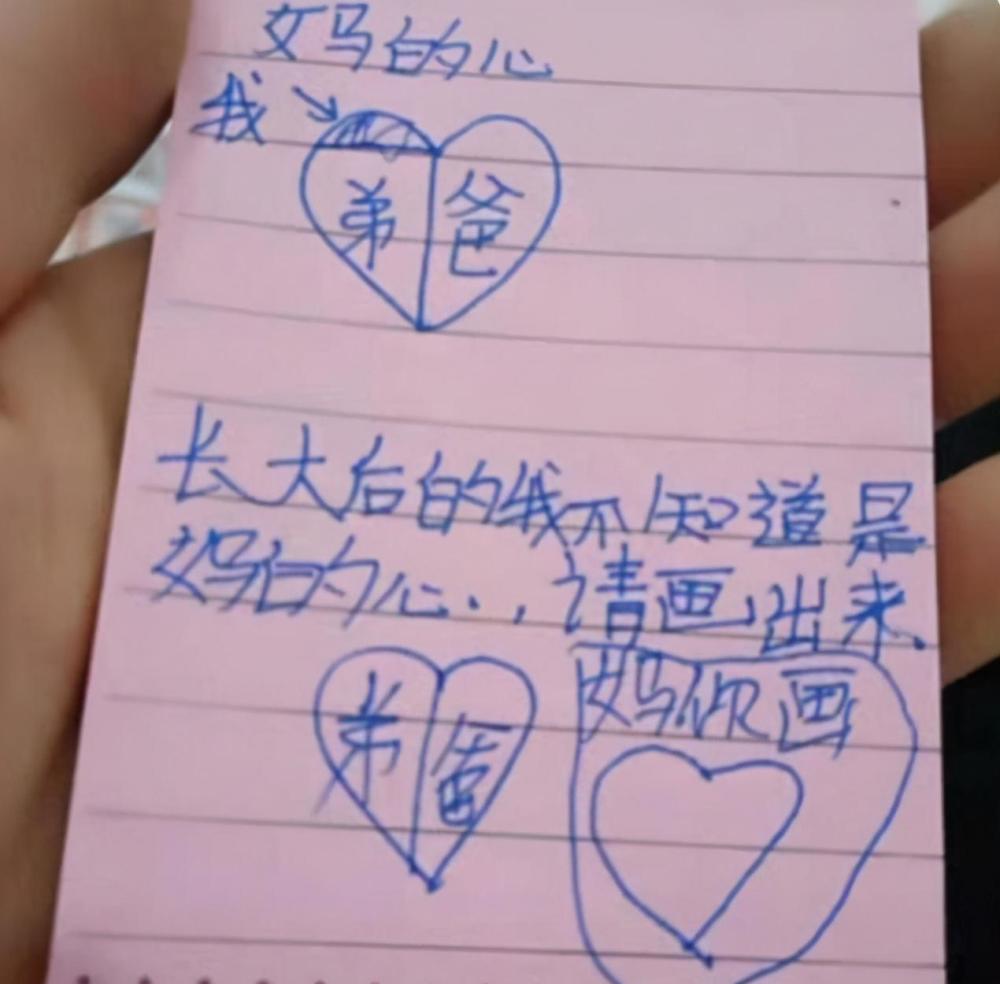 妈的心
我
弟 爸
长大后的我不知道是
妈的心..,请画出来.
弟 爸
妈你画